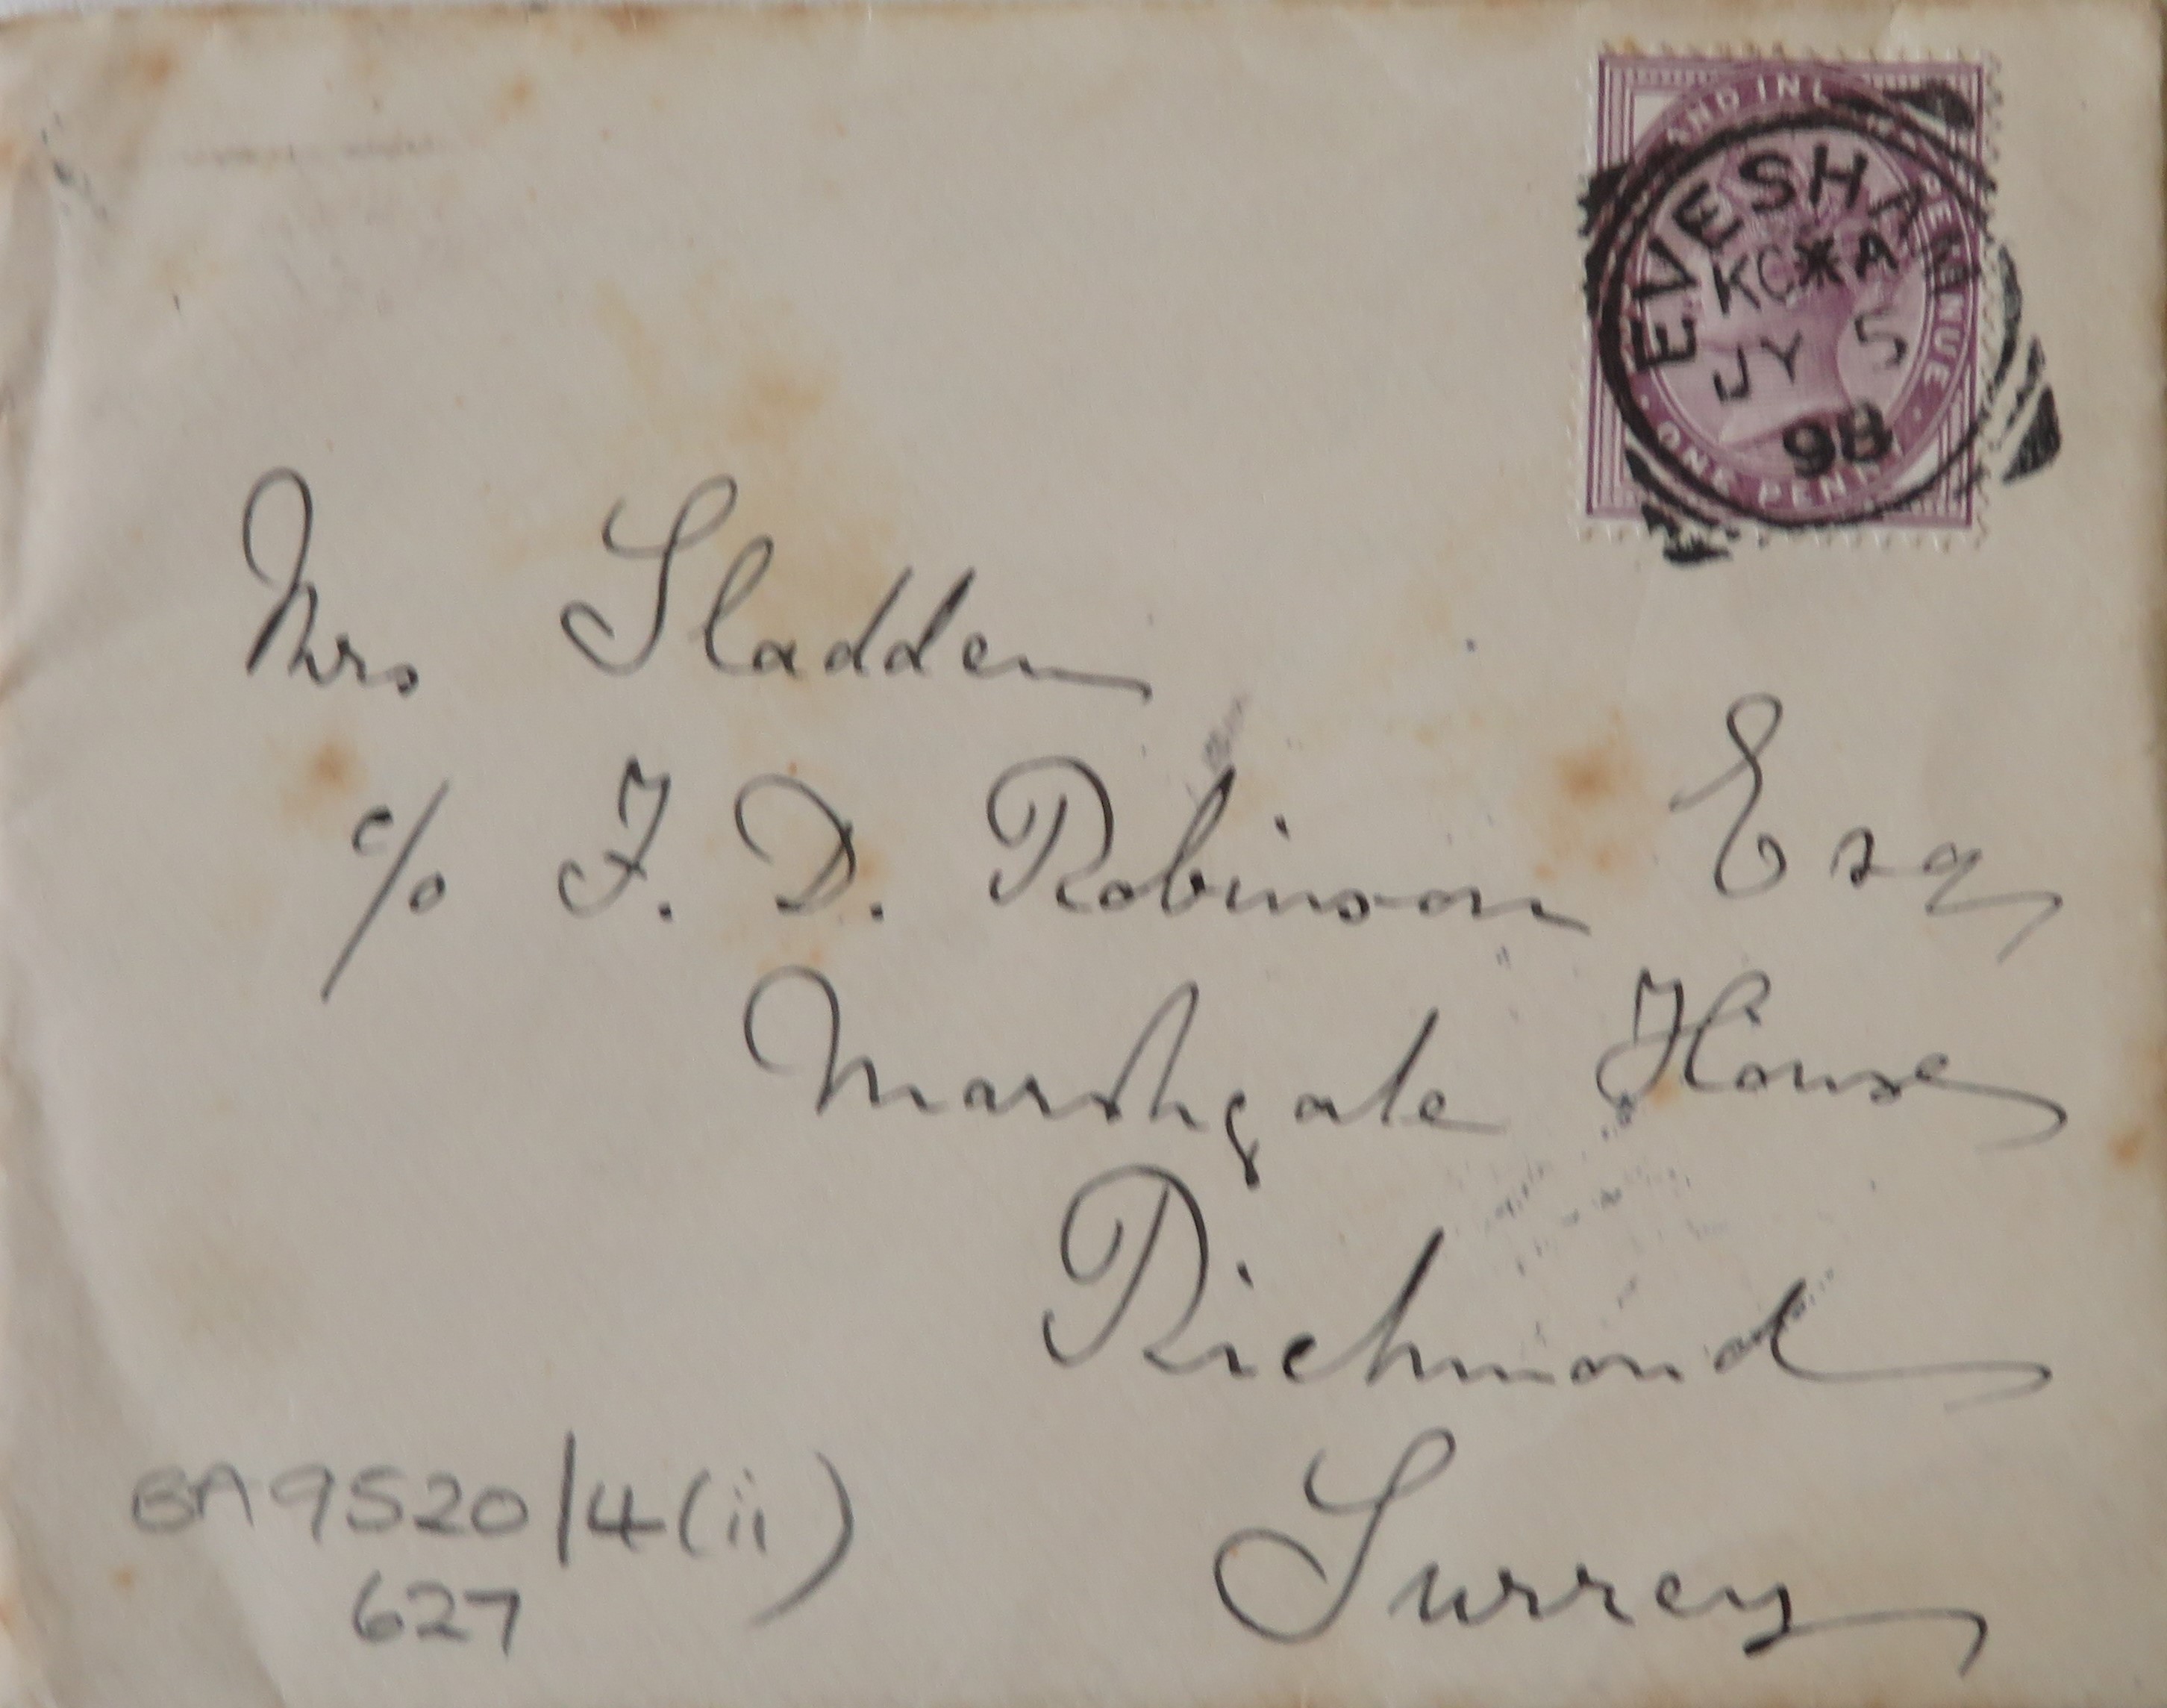 AND INL REVENUE
ONE PENNY
EVESHAM
KC*A
JY 5
98
Mrs Sladden
c/o F. D. Robinson Esq
Marshgate House
Richmond
Surrey
BA9520/4(ii)
627